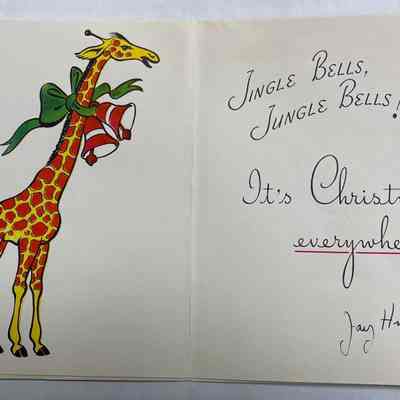 Jingle Bells,
Jungle Bells!
It's Christ
everywhe
Jay